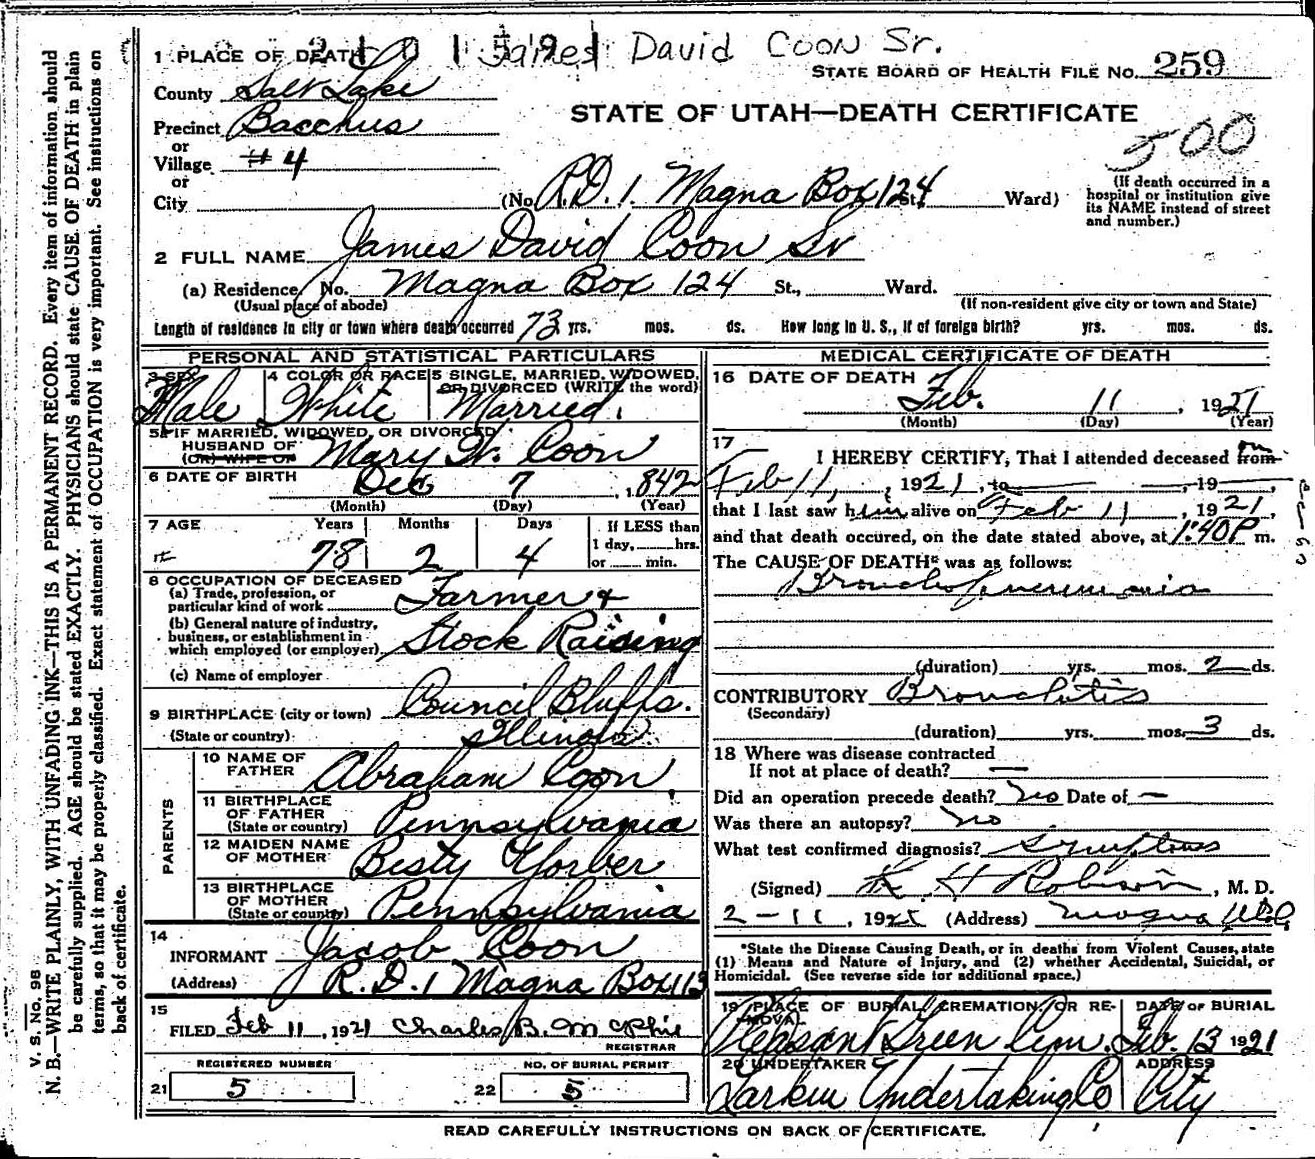 James David Coon Sr.
1 PLACE OF DEATH
STATE BOARD OF HEALTH FILE NO. 259
County Salt Lake
STATE OF UTAH—DEATH CERTIFICATE
Precinct Bacchus
500
or
Village #4
or
City (No. R.D. 1. Magna Box 124 St., Ward)
(If death occurred in a hospital or institution give its NAME instead of street and number.)
2 FULL NAME James David Coon Sr
(a) Residence, No. Magna Box 124 St., Ward.
(Usual place of abode) (If non-resident give city or town and State)
Length of residence in city or town where death occurred 73 yrs. mos. ds. How long in U. S., if of foreign birth? yrs. mos. ds.
PERSONAL AND STATISTICAL PARTICULARS
3 SEX 4 COLOR OR RACE 5 SINGLE, MARRIED, WIDOWED,
OR DIVORCED (WRITE the word)
Male White Married.
5a IF MARRIED, WIDOWED, OR DIVORCED
HUSBAND OF Mary W. Coon
(OR) WIFE OF
6 DATE OF BIRTH Dec 7, 1842
(Month) (Day) (Year)
7 AGE Years Months Days If LESS than
1 day, hrs.
78 2 4 or min.
8 OCCUPATION OF DECEASED
(a) Trade, profession, or
particular kind of work Farmer +
(b) General nature of industry,
business, or establishment in
which employed (or employer) Stock Raising
(c) Name of employer
9 BIRTHPLACE (city or town) Council Bluffs.
(State or country) Illinois.
PARENTS
10 NAME OF
FATHER Abraham Coon
11 BIRTHPLACE
OF FATHER
(State or country) Pennsylvania
12 MAIDEN NAME
OF MOTHER Besty Yorber
13 BIRTHPLACE
OF MOTHER
(State or country) Pennsylvania
14
INFORMANT Jacob Coon
(Address) R.D. 1 Magna Box 113
15
FILED Feb 11, 1921 Charles B. McPhie
REGISTRAR
REGISTERED NUMBER NO. OF BURIAL PERMIT
21 5 22 5
MEDICAL CERTIFICATE OF DEATH
16 DATE OF DEATH Feb. 11, 1921
(Month) (Day) (Year)
17
I HEREBY CERTIFY, That I attended deceased from on
Feb 11, 1921, to , 19
that I last saw him alive on Feb 11, 1921,
and that death occured, on the date stated above, at 1:40 P m.
The CAUSE OF DEATH* was as follows:
Broncho pneumonia
(duration) yrs. mos. 2 ds.
CONTRIBUTORY Bronchitis
(Secondary)
(duration) yrs. mos. 3 ds.
18 Where was disease contracted
If not at place of death? —
Did an operation precede death? No Date of —
Was there an autopsy? no
What test confirmed diagnosis? Symptoms
(Signed) H Robison, M. D.
2-11, 1921 (Address) Magna Utah
*State the Disease Causing Death, or in deaths from Violent Causes, state
(1) Means and Nature of Injury, and (2) whether Accidental, Suicidal, or
Homicidal. (See reverse side for additional space.)
19 PLACE OF BURIAL, CREMATION, OR RE- DATE OF BURIAL
MOVAL
Pleasant Green Cem. Feb. 13 1921
20 UNDERTAKER ADDRESS
Larkin Undertaking Co City
READ CAREFULLY INSTRUCTIONS ON BACK OF CERTIFICATE.
V. S. No. 98
N. B.—WRITE PLAINLY, WITH UNFADING INK—THIS IS A PERMANENT RECORD. Every item of information should
be carefully supplied. AGE should be stated EXACTLY. PHYSICIANS should state CAUSE OF DEATH in plain
terms, so that it may be properly classified. Exact statement of OCCUPATION is very important. See instructions on
back of certificate.